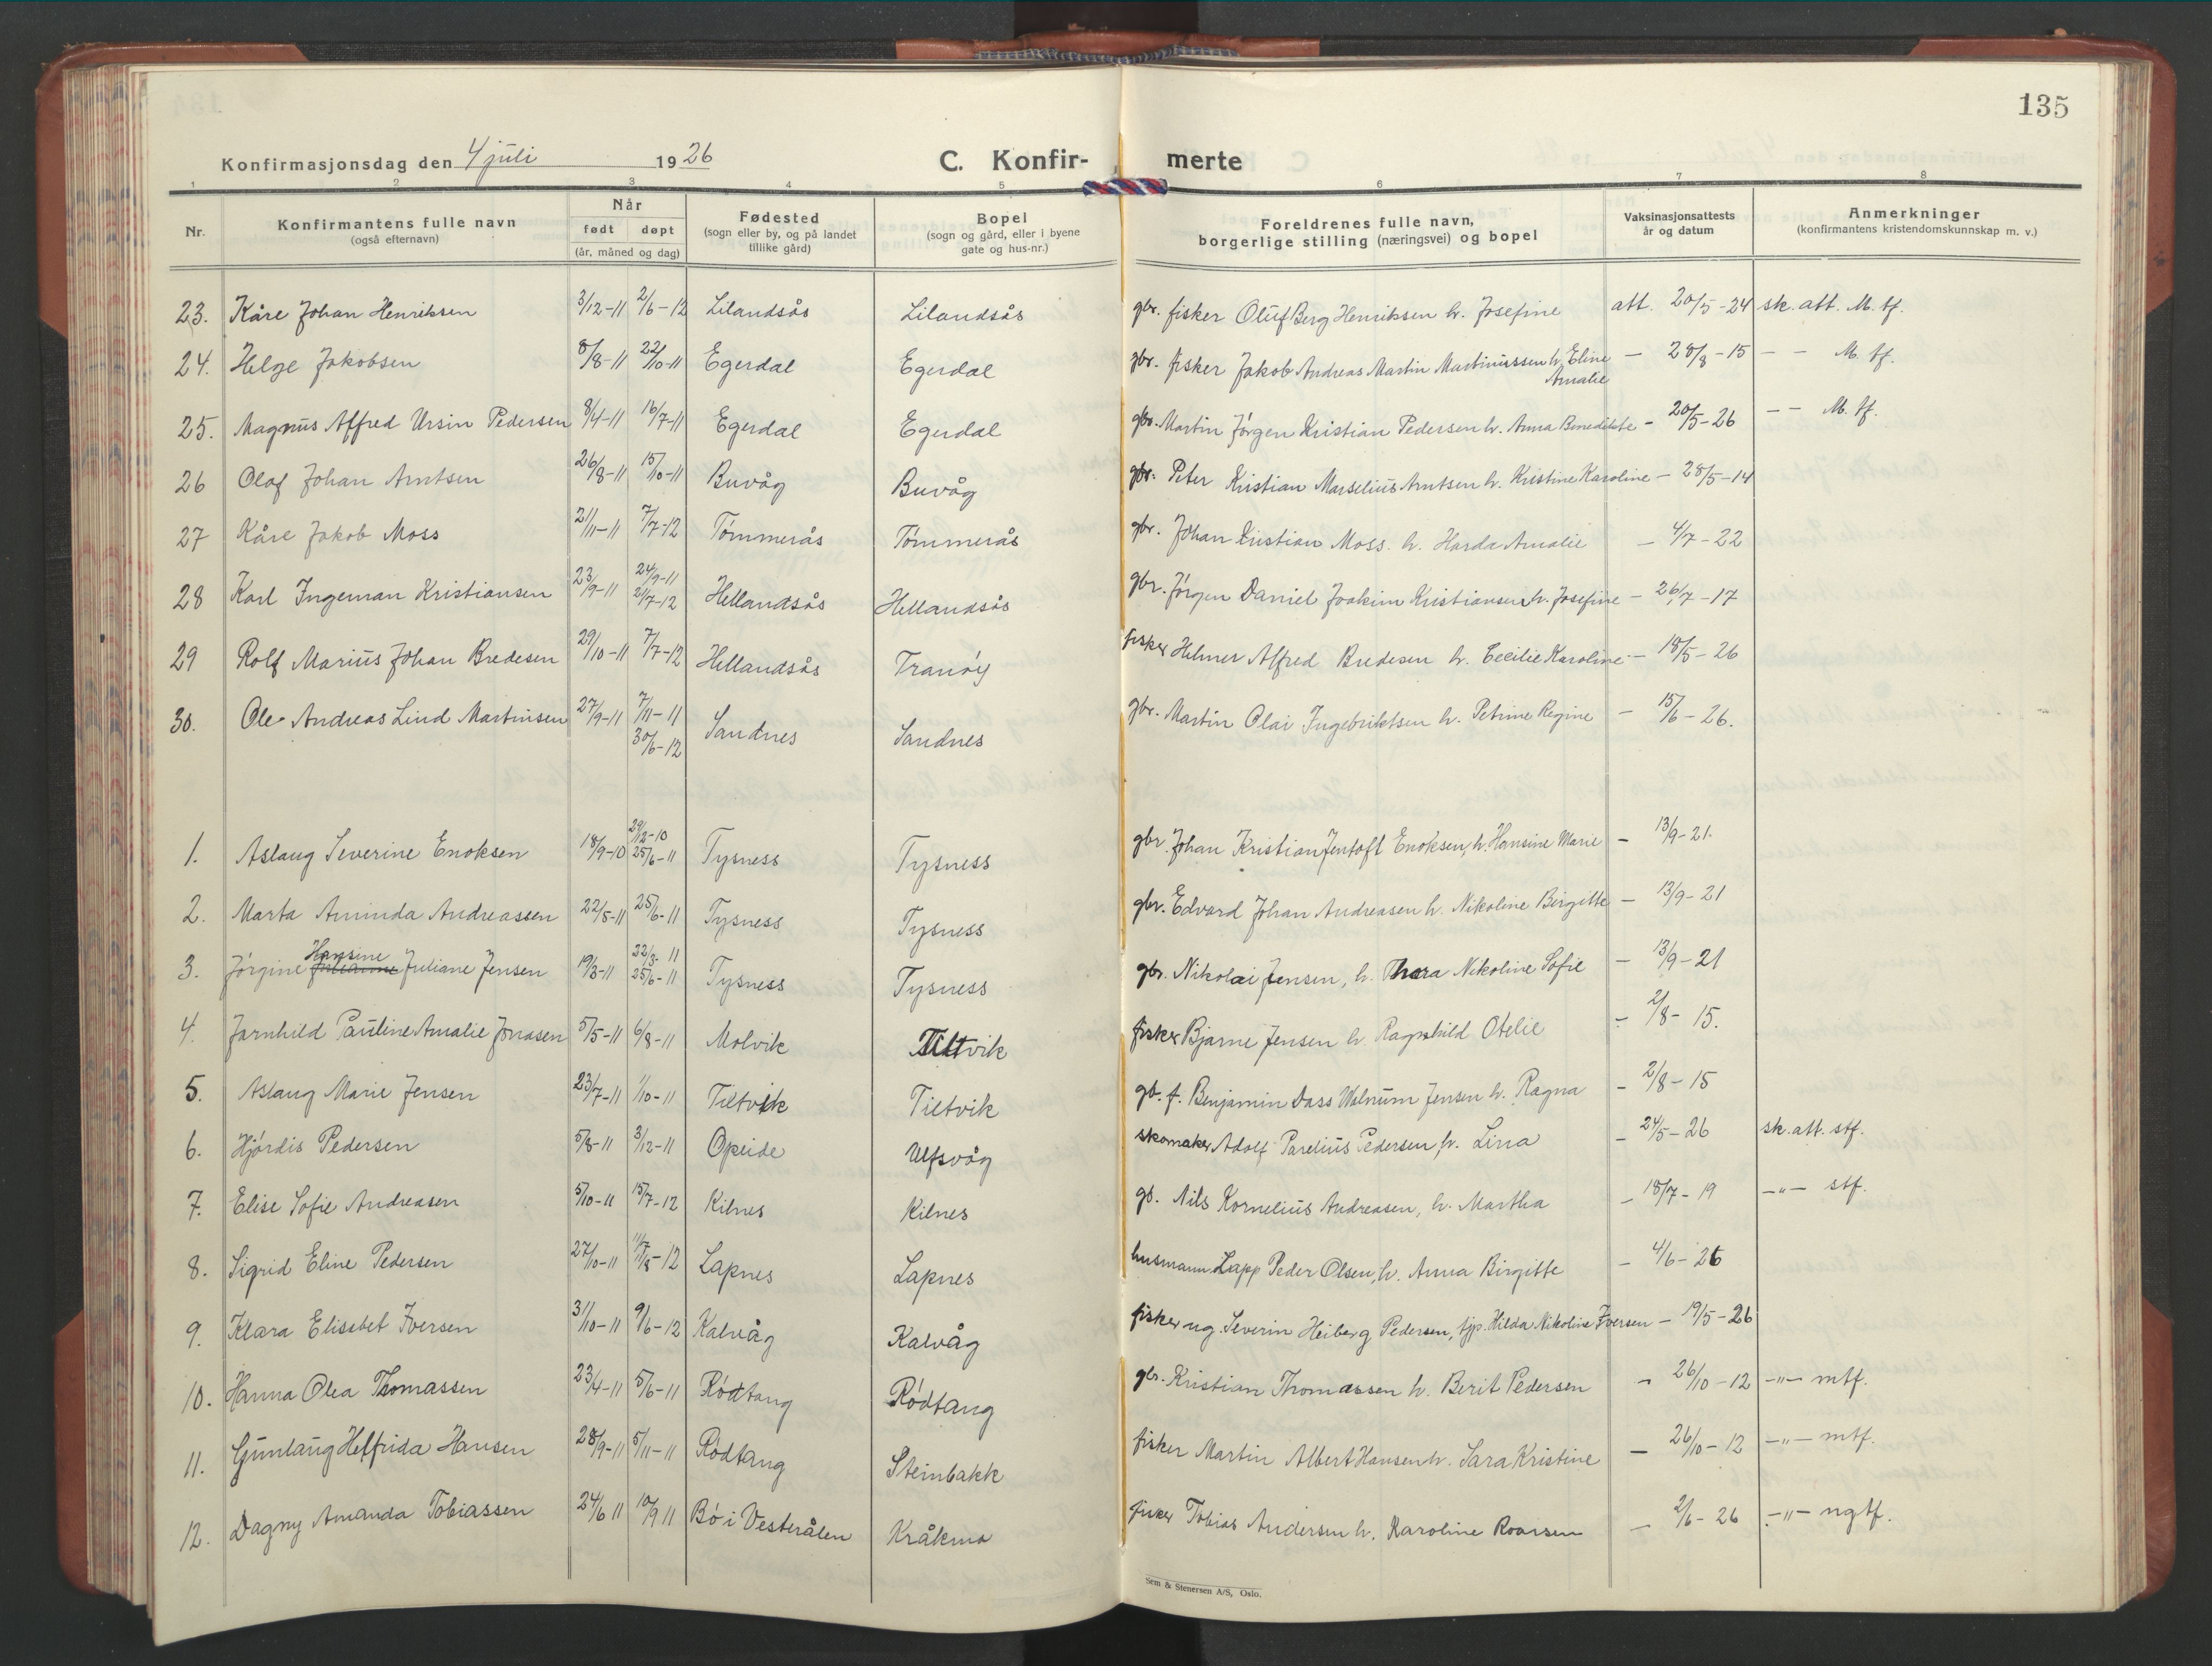 135
Konfirmasjonsdag den 4 juli 1926
C. Konfirmerte
1 2 3 4 5 6 7 8
Nr. | Konfirmantens fulle navn (også efternavn) | Når født døpt (år, måned og dag) | Fødested (sogn eller by, og på landet tillike gård) | Bopel (sogn og gård, eller i byene gate og hus-nr.) | Foreldrenes fulle navn, borgerlige stilling (næringsvei) og bopel | Vaksinasjonsattests år og datum | Anmerkninger (konfirmantens kristendomskunnskap m. v.)
23. Kåre Johan Henriksen 3/12-11 2/6-12 Lilandsås Lilandsås gbr. fisker Oluf Berg Henriksen h. Josefine att. 20/5-24 sk. att. M. tf.
24. Helge Jakobsen 8/8-11 22/10-11 Egerdal Egerdal gbr. fisker Jakob Andreas Martin Martinussen h. Eline Amalie – 28/8-15 – – M. tf.
25. Magnus Alfred Ursin Pedersen 8/4-11 16/7-11 Egerdal Egerdal gbr. Martin Jörgen Kristian Pedersen h. Anna Benedikte – 20/5-26 – – M. tf.
26 Olaf Johan Arntsen 26/8-11 15/10-11 Buvåg Buvåg gbr. Peter Kristian Marselius Arntsen h. Kristine Karoline – 28/5-14
27 Kåre Jakob Moss 21/11-11 7/7-12 Tömmerås Tömmerås gbr. Johan Kristian Moss. h. Harda Amalie – 4/7-22
28 Karl Ingeman Kristiansen 23/9-11 24/9-11 21/7-12 Hellandsås Hellandsås gbr. Jörgen Daniel Joakim Kristiansen h. Josefine – 26/7-17
29 Rolf Marius Johan Bredesen 29/10-11 7/7-12 Hellandsås Tranöy fisker Helmer Alfred Bredesen h. Cecilie Karoline – 18/5-26
30. Ole Andreas Lind Martinsen 27/9-11 7/11-11 30/6-12 Sandnes Sandnes gbr. Martin Olai Ingebriktsen h. Petrine Regine – 15/6-26.
1. Aslaug Severine Enoksen 18/9-10 29/12-10 25/6-11 Tysness Tysness gbr. Johan Kristian Jentoft Enoksen, h. Hansine Marie – 13/9-21.
2. Marta Aminda Andreassen 22/5-11 25/6-11 Tysness Tysness gbr. Edvard Johan Andreasen h. Nikoline Birgitte – 13/9-21
3. Jörgine Hansine Juliane Jensen 19/3-11 22/3-11 25/6-11 Tysness Tysness gbr. Nikolai Jensen, h. Thora Nikoline Sofie – 13/9-21
4. Jarnhild Pauline Amalie Jonasen 5/5-11 6/8-11 Molvik Tiltvik fisker Bjarne Jensen h. Ragnhild Otelie – 2/8-15.
5. Aslaug Marie Jensen 23/7-11 1/10-11 Tiltvik Tiltvik gb. f. Benjamin Dass Walnum Jensen h. Ragna – 2/8-15
6. Hjördis Pedersen 5/8-11 3/12-11 Opeide Ulfsvåg skomaker Adolf Parelius Pedersen, h. Lina – 24/5-26 sk. att. stf.
7. Elise Sofie Andreasen 5/10-11 15/7-12 Kilnes Kilnes gb. Nils Kornelius Andreasen, h. Martha – 18/7-19 –"– stf.
8. Sigrid Eline Pedersen 27/10-11 11/8-12 Lapnes Lapnes husmann Lapp Peder Olsen, h. Anna Birgitte – 4/6-26
9. Klara Elisabet Iversen 31/10-11 9/6-12 Kalvåg Kalvåg fisker ug. Severin Heiberg Pedersen, tjp. Hilda Nikoline Iversen – 19/5-26
10. Hanna Olea Thomassen 23/4-11 5/6-11 Rödtang Rödtang gbr. Kristian Thomassen h. Berit Pedersen – 26/10-12 –"– mtf.
11. Gunlaug Helfrida Hansen 28/9-11 5/11-11 Rödtang Steinbakk fisker Martin Albert Hansen h. Sara Kristine – 26/10-12 –"– mtf.
12. Dagny Amanda Tobiassen 24/6 11 10/9 11 Bö i Vesterålen Kråkmo fisker Tobias Andersen h. Karoline Roarsen – 2/6-26 –"– ngtf.
Sem & Stenersen A/S, Oslo.